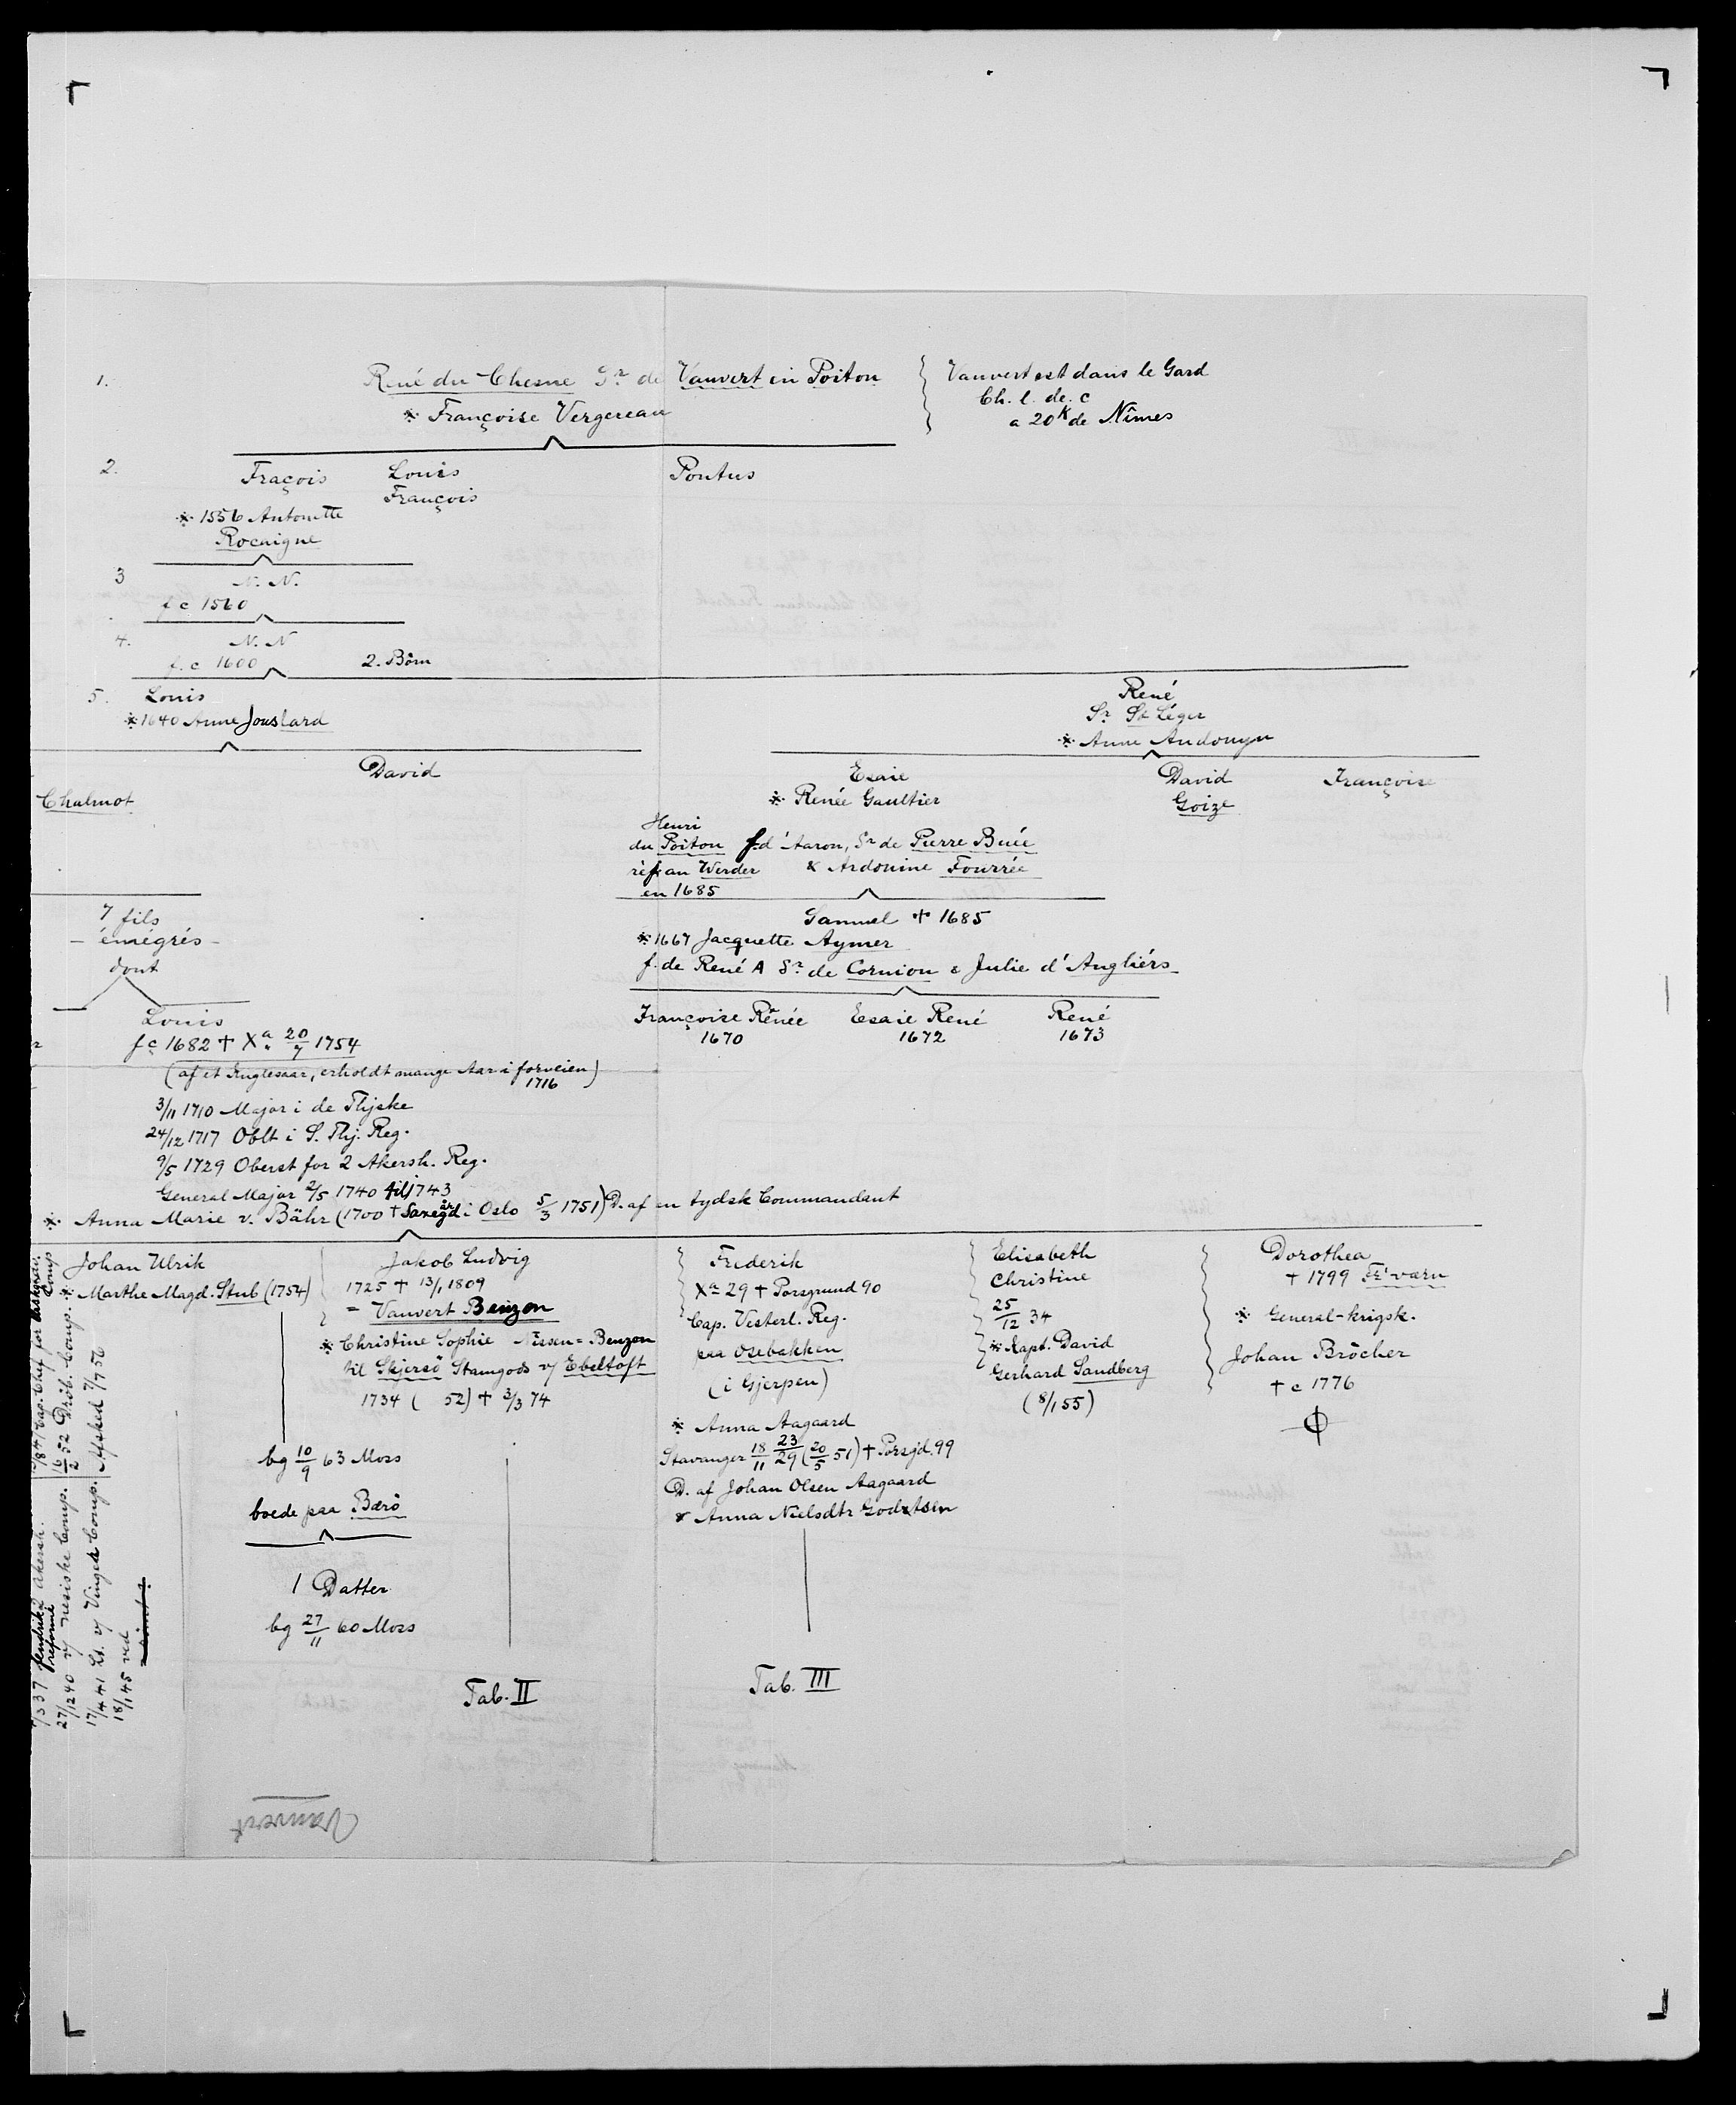 1. René du Chesne Sr de Vauvert en Poiton
* Françoise Vergereau
Vauvert est dans le Gard
Ch. l. de. c
a 20 K de Nîmes
2. Fraçois Louis Pontus
François
* 1556 Antoinette
Rocaigne
3 N. N.
f c 1560
4. N. N
f. c 1600 2. Börn
5. Louis
* 1640 Anne Jouslard
René
Sr St Léger
* Anne Audouyn
David
Chalmot
Esaie David Françoise
* Renée Gaultier Goize
Henri
du Poiton f. d'Aaron, Sr de Pierre Buée
réf. an Werder & Ardouine Fourrée
en 1685
7 fils
- émégrés -
dont
Samuel † 1685
* 1667 Jacquette Aymer
f. de René A Sr de Cornion & Julie d'Angliérs
Françoise Rénée Esaie René René
1670 1672 1673
Louis
f c 1682 † Xa 20/7 1754
(af et Slugtesaar, erholdt mange Aar i forveien)
1716
3/11 1710 Major i de Flyske
24/12 1717 Oblt i S. Thj. Reg.
9/5 1729 Oberst for 2 Akersh. Reg.
General Major 2/5 1740 til 1743
* Anna Marie v. Bähr (1700 † Saxegård i Oslo 5/3 1751) D. af en tydsk Commandant
Johan Ulrik
* Marthe Magd. Stub (1754)
bg 10/9 63 Moss
boede paa Bærö
1 Datter
bg 27/11 60 Moss
Jakob Ludvig
1725 † 13/1 1809
= Vauvert Benzon
* Christine Sophie Nissen = Benzon
til Skjersö Stamgods v/ Ebeltoft
1734 ( 52) † 3/3 74
Tab. II
Frederik
Xa 29 † Porsgrund 90
Cap. Vesterl. Reg.
paa Osebakken
(i Gjerpen)
* Anna Aagaard
Stavanger 18/11 23/29 (20/5 51) † Porsgd. 99
D. af Johan Olsen Aagaard
& Anna Nielsdtr Godtzen
Tab. III
Elisabeth
Christine
25/12 34
* Kapt. David
Gerhard Sandberg
(8/1 55)
Dorothea
† 1799 Fr' værn
* General-krigsk.
Johan Bröcher
† c 1776
27/12 40 v/ nesiske Comp. 16/2 52 Dröb. Comp.
17/4 41 Lt. v/ Vinger Comp. Afsked 7/7 56
18/1 45 ved
Vauvert